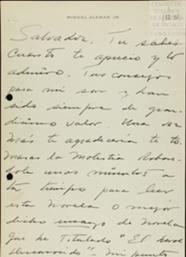 MIGUEL ALEMAN JR.
Salvador, Tu sabes
cuanto te aprecio y te
admiro. Tus consejos
para mi son y han
sido siempre de gran-
dísimo valor. Una vez
más te agradecería te to-
maras la molestia
unos minutos a
tu tiempo para leer
esta Novela o mejor
dicho ensayo de novela
que he titulado "El